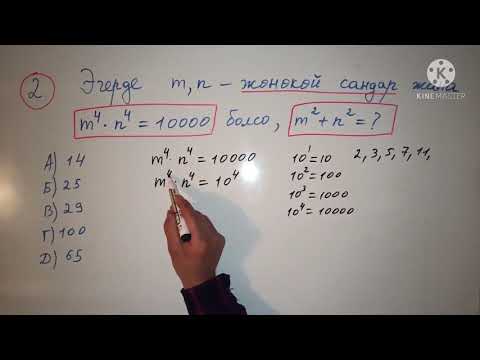 2 Эгерде m,n – жөнөкөй сандар жана
m⁴ · n⁴ = 10000 болсо, m² + n² = ?
А) 14
Б) 25
В) 29
Г) 100
Д) 65
m⁴ · n⁴ = 10000
m⁴ · n⁴ = 10⁴
10¹ = 10
10² = 100
10³ = 1000
10⁴ = 10000
2, 3, 5, 7, 11,
KINEMASTER